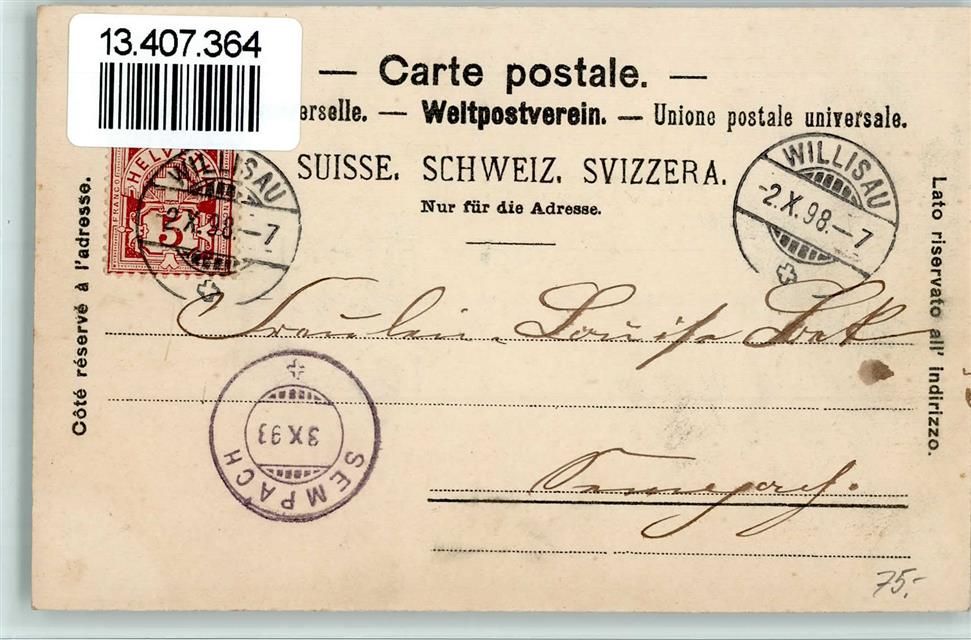 13.407.364
— Carte postale. —
erselle. — Weltpostverein. — Unione postale universale.
SUISSE. SCHWEIZ. SVIZZERA.
Nur für die Adresse.
Côté réservé à l'adresse.
Lato riservato all' indirizzo.
FRANCO
HELV
5
WILLISAU
-2.X.98.-7
WILLISAU
-2.X.98.-7
Fräulein Louise
SEMPACH
3 X 93
75.-